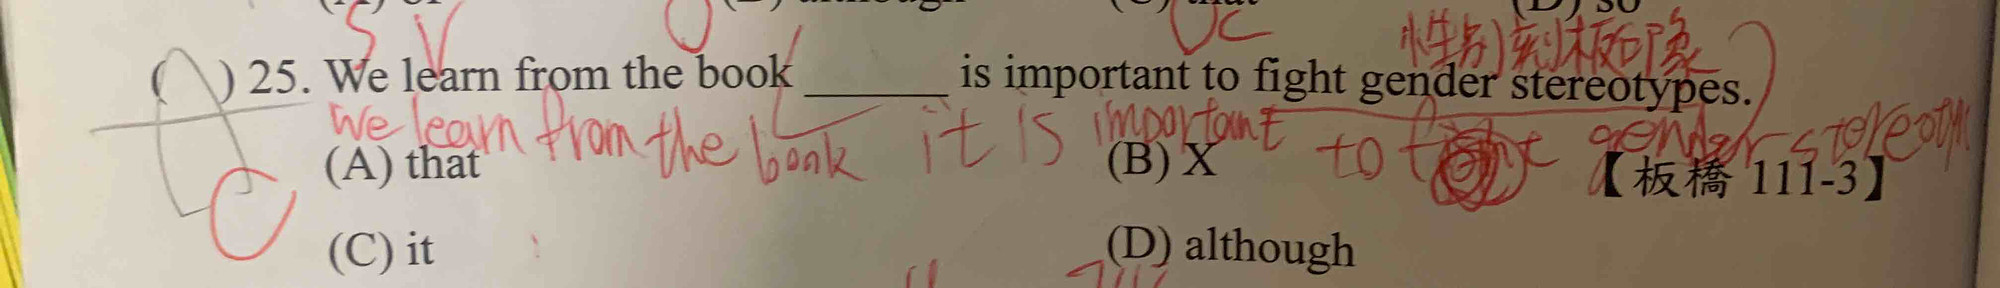 S V O OC 性別刻板印象
( ) 25. We learn from the book ______ is important to fight gender stereotypes.
We learn from the book it is important to gender stereoty
(A) that (B) X 【板橋 111-3】
C
(C) it (D) although